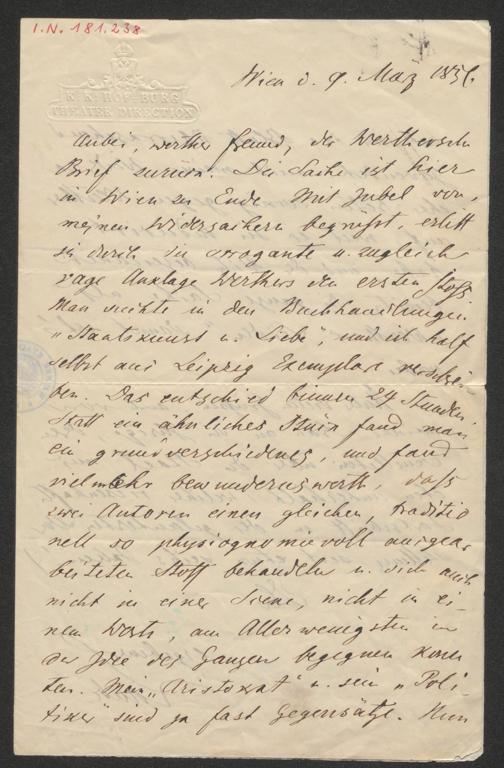 I.N. 181.238
K. K. HOF-BURG
THEATER DIRECTION
Wien d. 9. März 185
Anbei, werther Freund, der Werthersche
Brief zurück. Die Sache ist hier
in Wien zu Ende. Mit Jubel von
meinen Widersachern begrüßt, erlitt
sie durch die arrogante u. zugleich
vage Anklage Werthers den ersten Stoß.
Man suchte in den Buchhandlungen
„Staatskunst u. Liebe“, und ich half
selbst aus Leipzig Exemplare verschrei
ben. Das entschied binnen 24 Stunden.
Statt ein ähnliches Stück fand man
ein grundverschiedenes, und fand
vielmehr bewundernswerth, daß
zwei Autoren einen gleichen, traditio
nell so physiognomievoll ausgear
beiteten Stoff behandeln u. sich auch
nicht in einer Scene, nicht in ei-
nem Worte, am Allerwenigsten in
der Idee des Ganzen begegnen konn
ten. Mein „Aristokrat“ u. sein „Poli
tiker“ sind ja fast Gegensätze. Nun